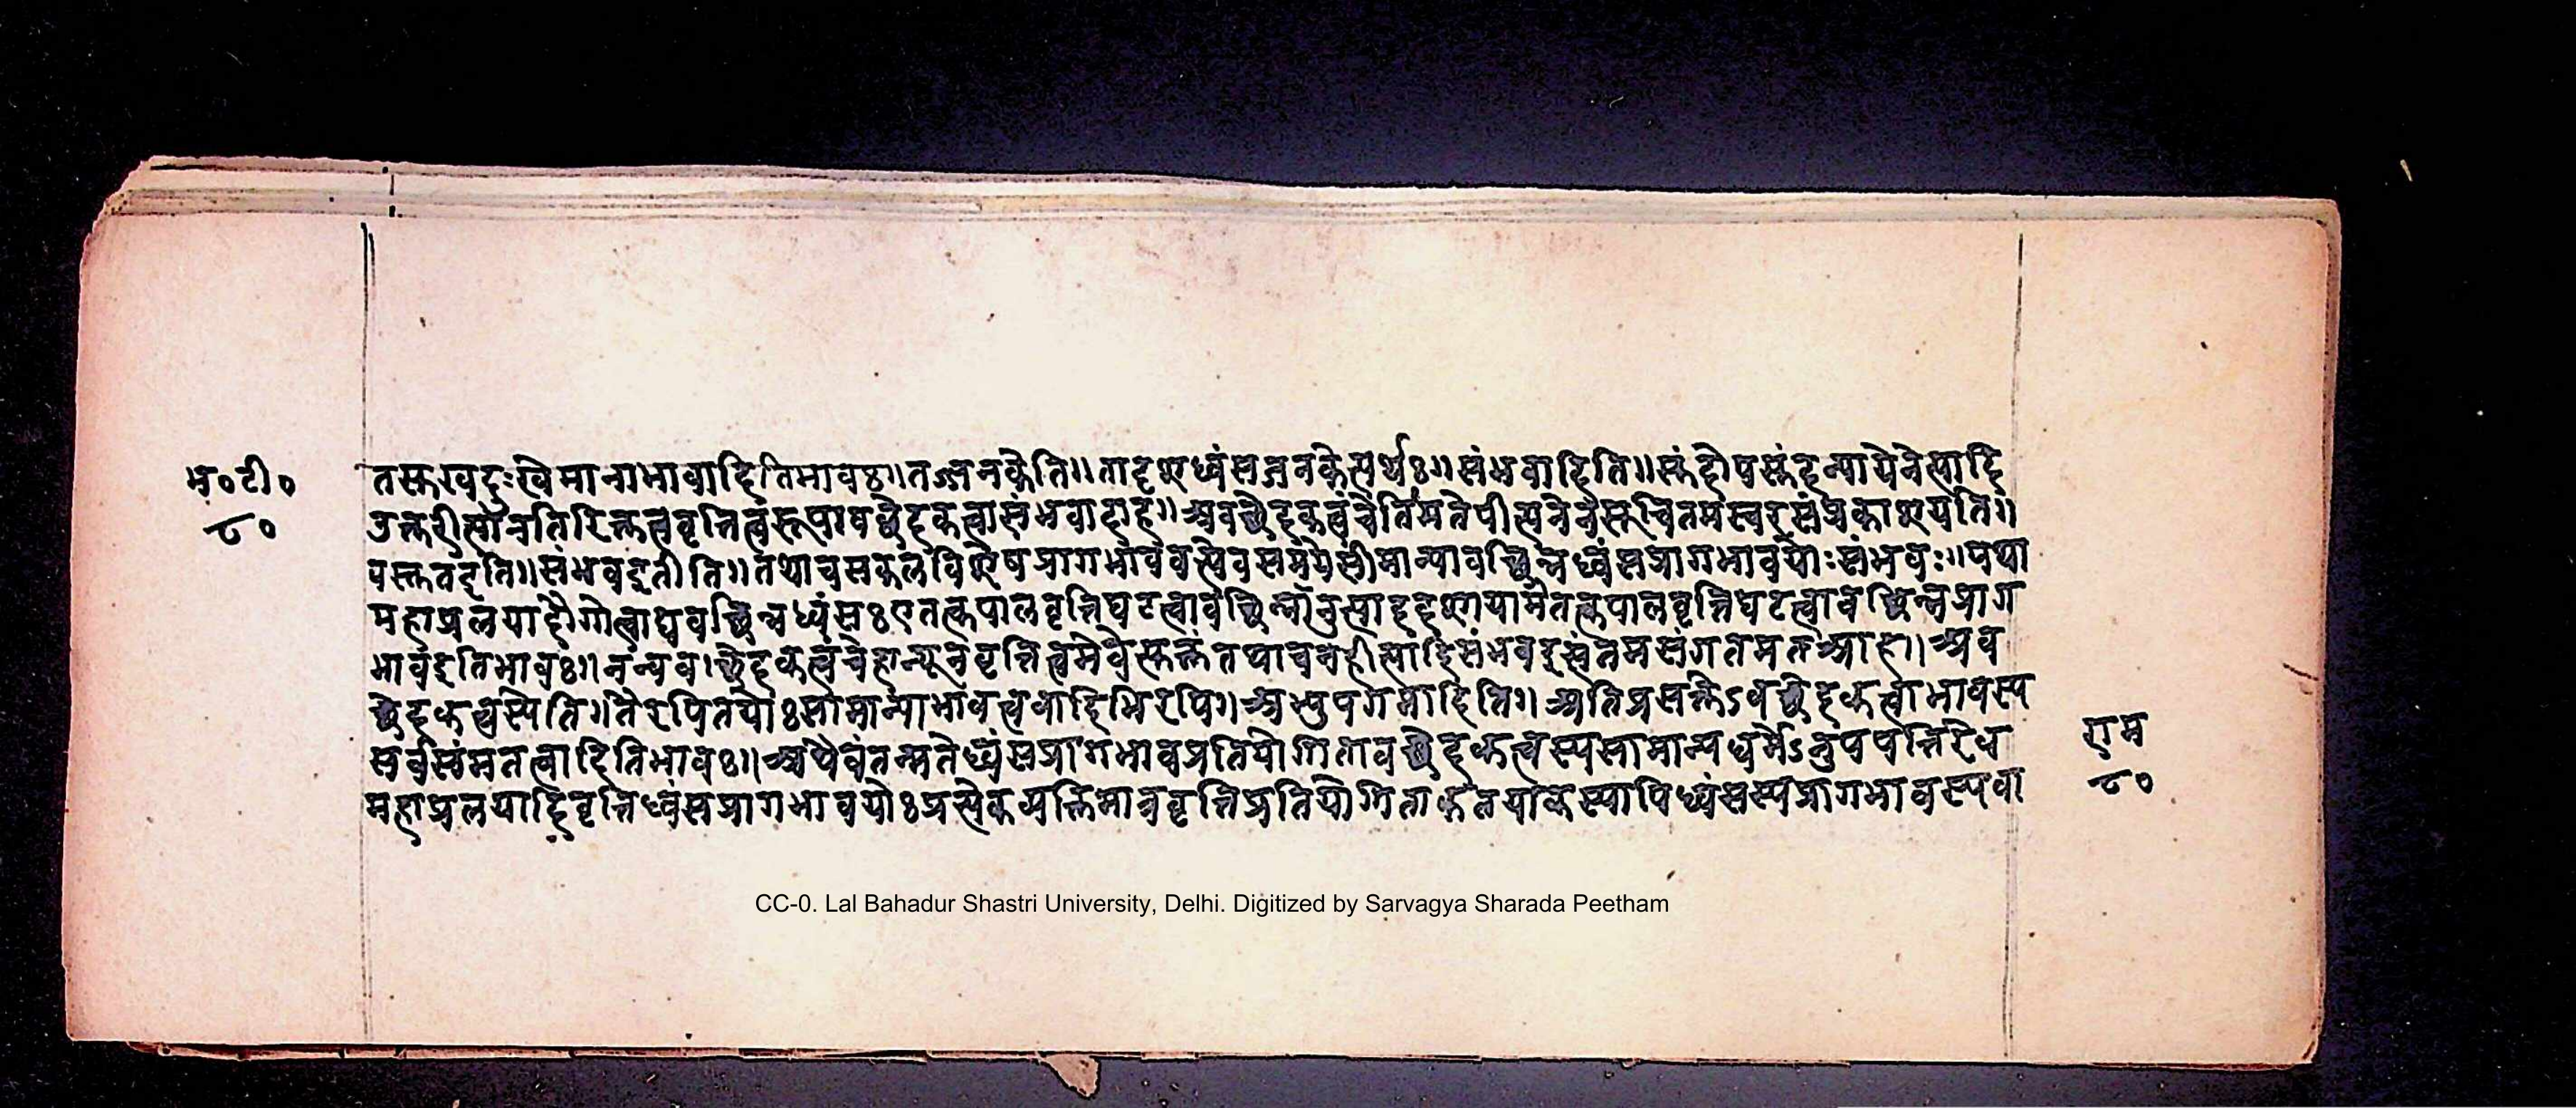 भ॰टी॰
८०
तस्करवदुःखेमानाभावादितिभावः॥तज्जनकेति॥तादृशध्वंसजनकेत्यर्थः॥संभवादिति॥
त्यानतिरिक्तत्ववृत्तित्वंरूपावच्छेदकत्वासंभवादाह॥अवच्छेदकत्वंचेतिमतेपीत्यनेनैसूचितमस्वरसंप्रकाशयति॥
वस्तुतइति॥संभवदुतीति॥तथाचसकलविशेषप्रागभाववत्येवसमयेसामान्यावच्छिन्नध्वंसप्रागभावयोःसंभवः॥यथा
महाप्रलयादौगोत्वाद्यवच्छिन्नध्वंसःएतत्कपालवृत्तिघटत्वावच्छिन्नानुत्पाददशायामेतत्कपालवृत्तिघटत्वावच्छिन्नप्राग
भावइतिभावः॥नन्ववच्छेदकत्वंचेहान्यूनवृत्तित्वमेवतथाचवहीत्यादिसंभवदुक्तंतमसंगतमतआह॥अव
च्छेदकत्वस्येति॥तैरपितयोःसामान्याभावत्ववादिभिरपि॥अभ्युपगमादिति॥अतिप्रसक्तेऽवच्छेदकत्वाभावस्य
सर्वसंमतत्वादितिभावः॥अथैवंतन्मतेध्वंसप्रागभावप्रतियोगितावच्छेदकत्वस्यसामान्यधर्मेऽनुपपत्तिरेव
महाप्रलयादिवृत्तिध्वंसप्रागभावयोःप्रत्येकव्यक्तिमात्रवृत्तिप्रतियोगिताकतयाकस्यापिध्वंसस्यप्रागभावस्यवा
राम
८०
CC-0. Lal Bahadur Shastri University, Delhi. Digitized by Sarvagya Sharada Peetham